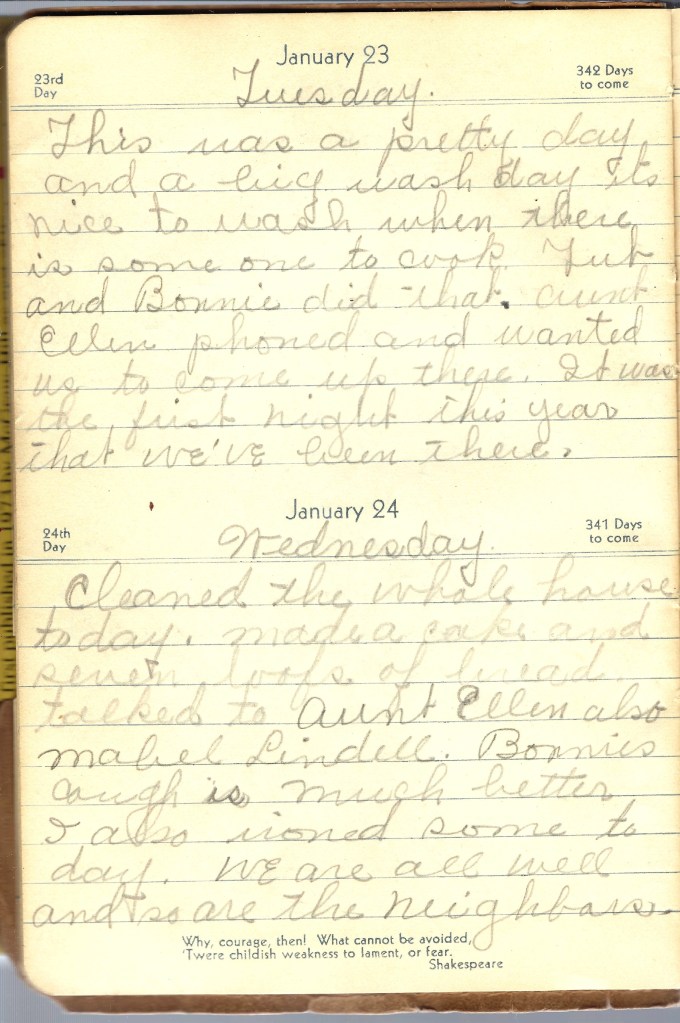 January 23
23rd
Day
342 Days
to come
Tuesday.
This was a pretty day
and a big wash day Its
nice to wash when there
is some one to cook. Tub
and Bonnie did that. Aunt
Ellen phoned and wanted
us to come up there. It was
the first night this year
that we've been there.
January 24
24th
Day
341 Days
to come
Wednesday.
Cleaned the whole house
today. made a cake and
seven loofs of bread.
talked to Aunt Ellen also
Mabel Lindell. Bonnies
cough is much better
I also ironed some to
day. We are all well
and so are the neighbors.
Why, courage, then! What cannot be avoided,
'Twere childish weakness to lament, or fear.
Shakespeare